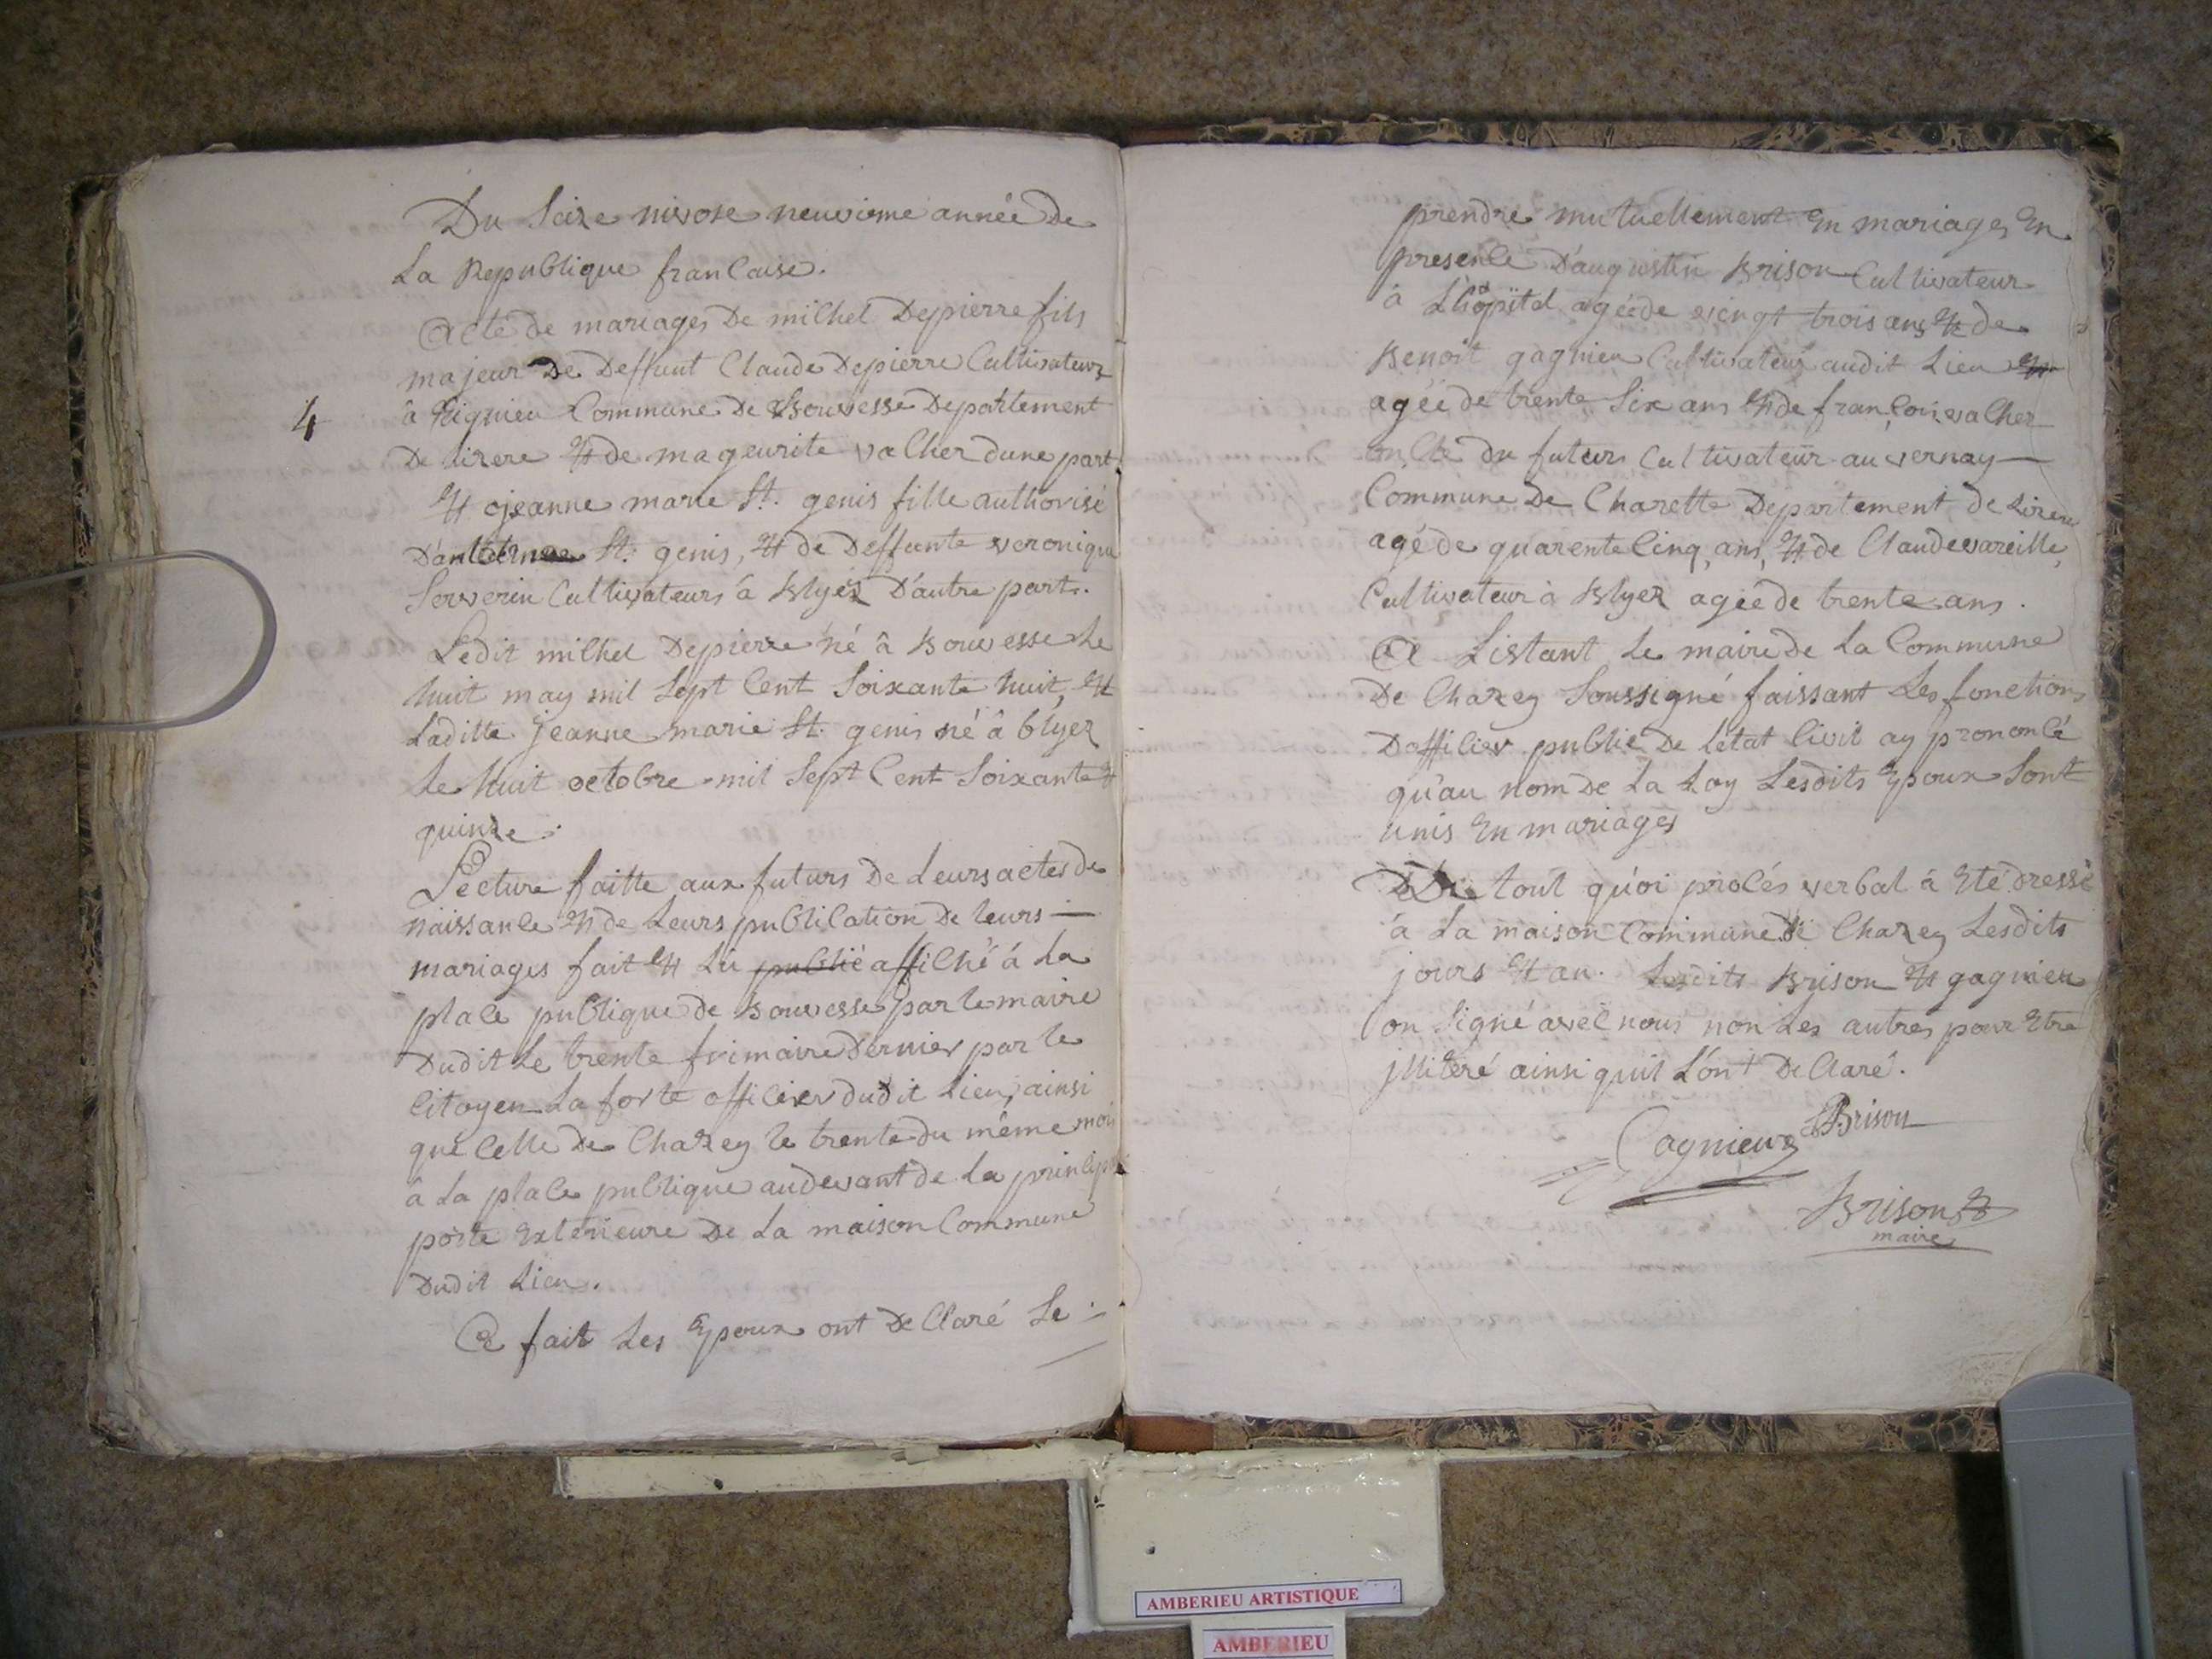 Du Seize nivose neuvieme année De
La Republique francaise.
Acte de mariages De michel Depierre fils
majeur De Deffunt Claude Depierre Cultivateur
4
â Commune De Bouvesse Departement
De lizere Et de mageurite vacher dune part
Et jeanne marie St. genis fille authorisé
St. genis, Et de Deffunte veronique
Serverin Cultivateurs â Blyez D'autre part.
Ledit michel Depierre né â Bouvesse le
huit may mil Sept Cent Soixante huit, Et
Laditte jeanne marie St. genis né â blyez
Le huit octobre mil Sept Cent Soixante Et
quinze.
Lecture faitte aux futurs De Leurs actes de
naissance Et de Leurs publication De leurs —
mariages fait Et Lu publié affiché á La
place publique de Bouvesse par le maire
Dudit Le trente frimaire Dernier par le
Citoyen Laforte officier dudit Lieu, ainsi
que Celle De Chazey le trente du même moi
â La place publique audevant de La principe
porte Exterieure De La maison Commune
Dudit Lieu.
Ce fait Les Epoux ont De Claré Se
prendre mutuellement En mariages En
presence D'augustin Brison Cultivateur
à Lhopital agée de vingt trois ans Et de
Benoit gagnieu Cultivateur audit Lieu
agéé de trente Six ans Et de francois vacher
oncle du futeurs Cultivateur au vernay —
Commune De Charette Departement de Lizere
agé de quarente Cinq, ans, Et de Claude vareille,
Cultivateur à Blyez agée de trente ans.
A Listant Le maire de La Commune
De Chazey Soussigné faissant Les fonctions
Dofficier publié De Létat Civil ay prononcé
qu'au nom De La Loy Lesdits Epoux Sont
unis En mariages
De tout qu'oi procés verbal á Eté dressé
á La maison Commune de Chazey Lesdits
jours Et an. Lesdits Brison Et gagnieu
on Signé avec nous non Les autres pour Etre
jlliteré ainsi quil L'ont De Claré.
Brison
Gagnieux
Brison
maire
AMBERIEU ARTISTIQUE
AMBERIEU